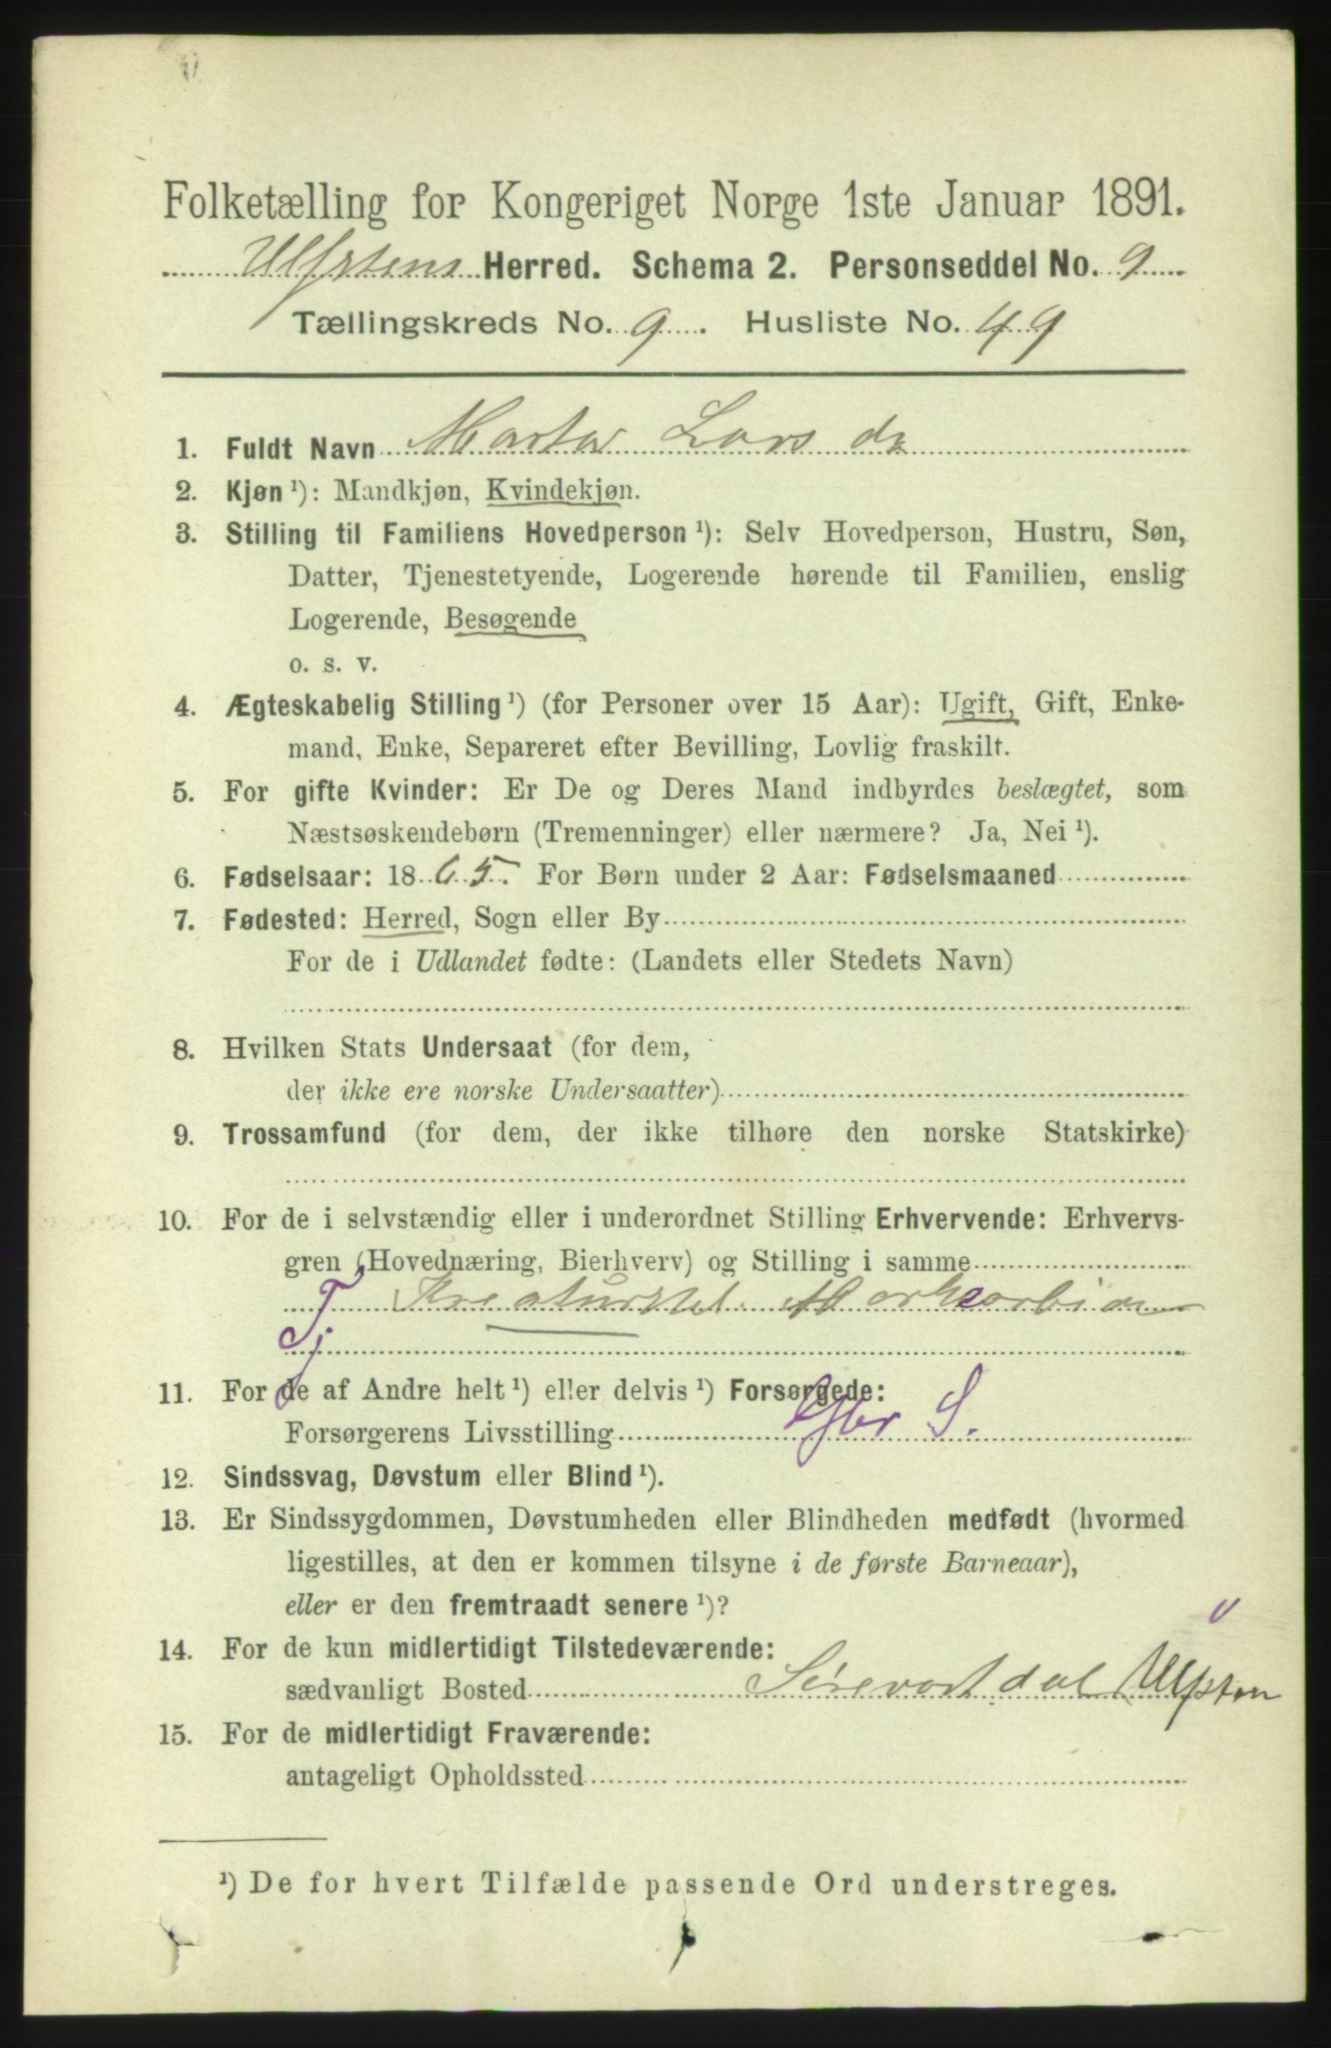 Folketælling for Kongeriget Norge 1ste Januar 1891.
Ulfstens Herred. Schema 2. Personseddel No. 9
Tællingskreds No. 9. Husliste No. 49
1. Fuldt Navn Marta Lars dr
2. Kjøn ¹): Mandkjøn, Kvindekjøn.
3. Stilling til Familiens Hovedperson ¹): Selv Hovedperson, Hustru, Søn,
Datter, Tjenestetyende, Logerende hørende til Familien, enslig
Logerende, Besøgende
o. s. v.
4. Ægteskabelig Stilling ¹) (for Personer over 15 Aar): Ugift, Gift, Enke-
mand, Enke, Separeret efter Bevilling, Lovlig fraskilt.
5. For gifte Kvinder: Er De og Deres Mand indbyrdes beslægtet, som
Næstsøskendebørn (Tremenninger) eller nærmere? Ja, Nei ¹).
6. Fødselsaar: 1865. For Børn under 2 Aar: Fødselsmaaned
7. Fødested: Herred, Sogn eller By
For de i Udlandet fødte: (Landets eller Stedets Navn)
8. Hvilken Stats Undersaat (for dem,
der ikke ere norske Undersaatter)
9. Trossamfund (for dem, der ikke tilhøre den norske Statskirke)
10. For de i selvstændig eller i underordnet Stilling Erhvervende: Erhvervs-
gren (Hovednæring, Bierhverv) og Stilling i samme
Tj. Kreaturstel
11. For de af Andre helt ¹) eller delvis ¹) Forsørgede:
Forsørgerens Livsstilling Gbr S.
12. Sindssvag, Døvstum eller Blind ¹).
13. Er Sindssygdommen, Døvstumheden eller Blindheden medfødt (hvormed
ligestilles, at den er kommen tilsyne i de første Barneaar),
eller er den fremtraadt senere ¹)?
14. For de kun midlertidigt Tilstedeværende:
sædvanligt Bosted Sørevartdal Ulfsten
15. For de midlertidigt Fraværende:
antageligt Opholdssted
¹) De for hvert Tilfælde passende Ord understreges.